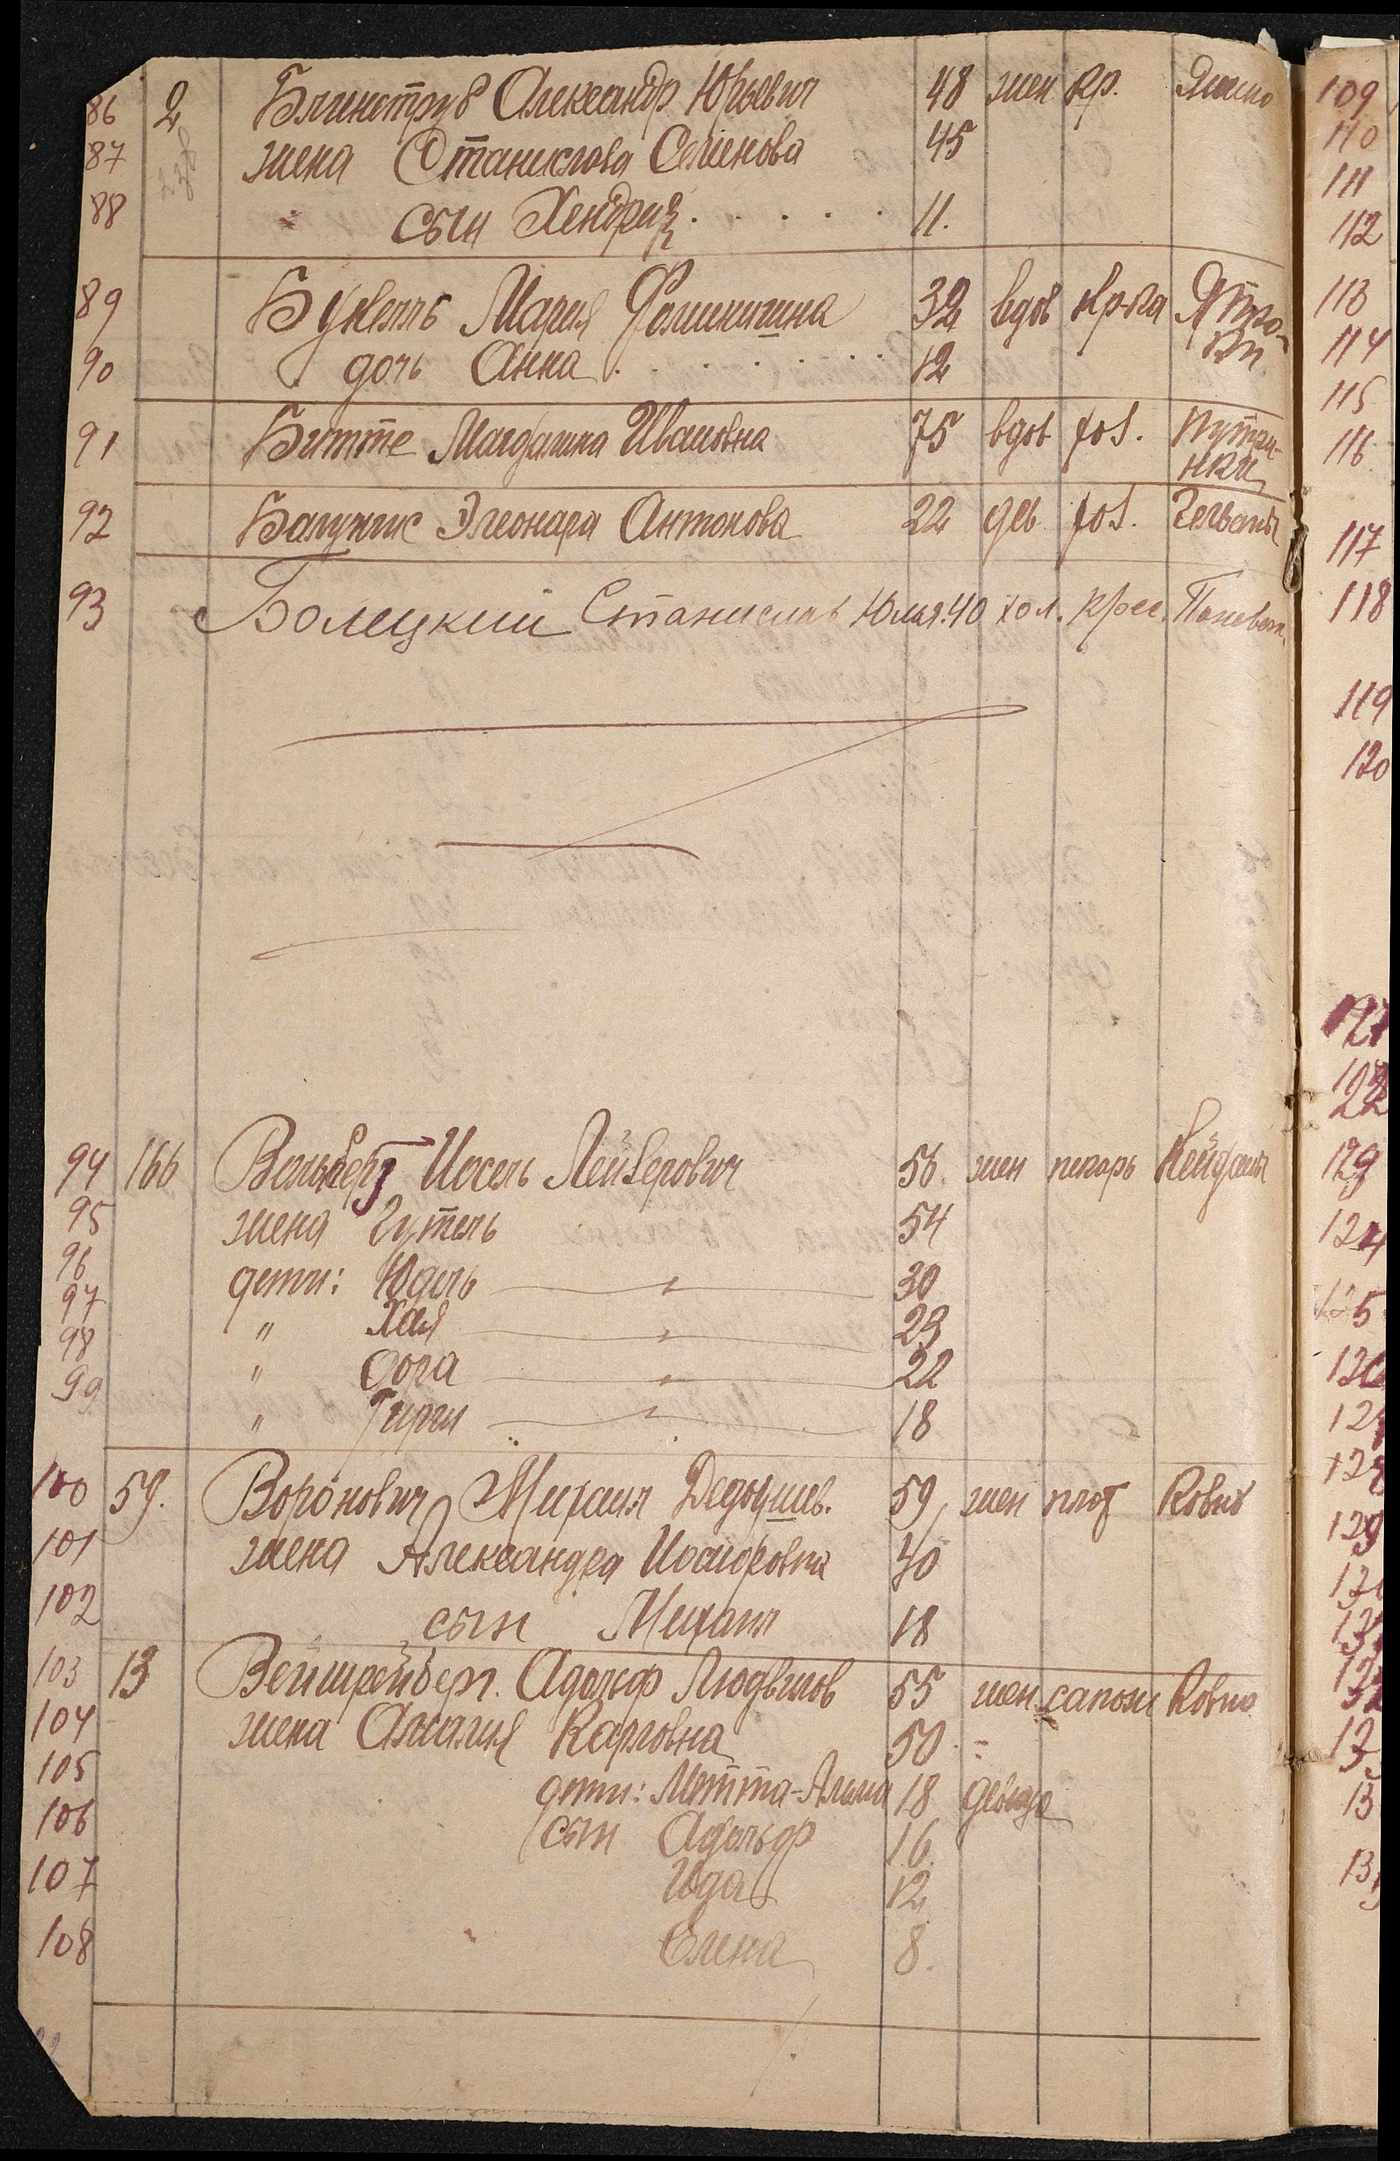 86 2 Блинструб Александр Юрьевич 48 жен кр.
87 жена Станислова Семенова 45
88 " сын Хендрик 11.
89 Букелль Мария 32 вдов кр-ка
90 дочь Анна 12
91 Битте Магдалина Ивановна 75 вдов хоз.
92 Балужис Элеонара Антонова 22 дев хоз.
93 Болецкий Станислав Юлья. 40 хол. крес. Поневеж.
94 166 Вольберг Иосель Лейберович 56. жен пекарь Кейданы
95 жена Гутель 54
96 дети: Юдель " 30
97 " Хая " 23
98 " Сора " 22
99 " Гирш " 18
100 59. Воронович Михаил 59 жен плот Ковно
101 жена Александра 40
102 сын Михаил 18
103 13 Вейшрейбер. Адольф Людвигов 55 жен сапож Ковно
104 жена Амалия Карловна 50 "
105 дети: Метта-Альма 18 девица
106 сын Адольф 16
107 Ида 12
108 Елена 8.
109
110
111
112
113
114
115
116
117
118
119
120